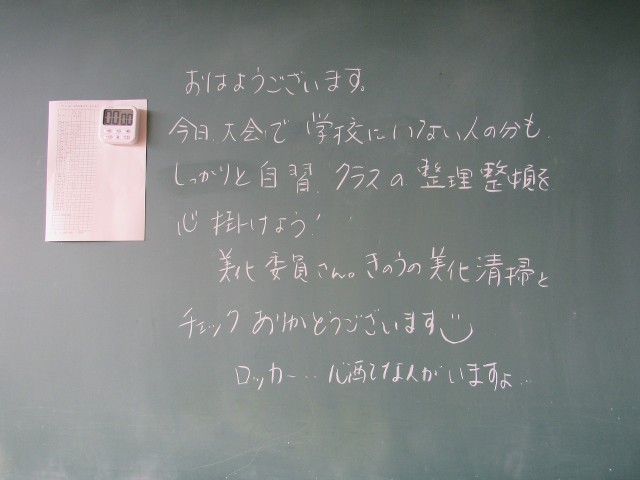 おはようございます。
今日、大会で学校にいない人の分も、
しっかりと自習、クラスの整理整頓を
心掛けよう!
美化委員さん。きのうの美化清掃と
チェックありがとうございます
ロッカー…心配な人がいますよ…
00:00